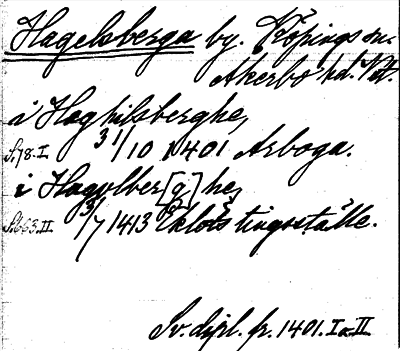 Hagelsberga by. Köpings sn.
Åkerbo hd. Vstm.
i Haghilsberghe,
S.78.I 31/10 1401 Arboga.
i Hagelber[g]he,
S.663.II. 3/7 1413 Ekloss tingsställe.
Sv. dipl. fr. 1401. I o. II